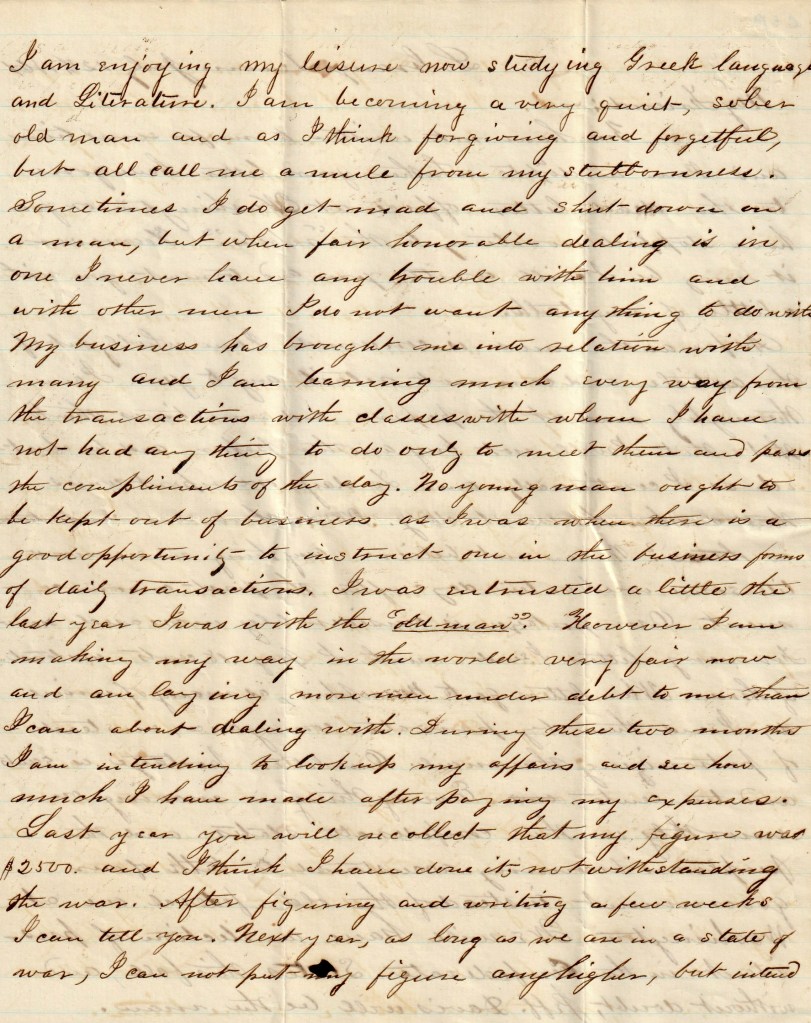 I am enjoying my leisure now studying Greek language
and Literature. I am becoming a very quiet, sober
old man and as I think forgiving and forgetful,
but all call me a mule from my stubbornness.
Sometimes I do get mad and shut down on
a man, but when fair honorable dealing is in
one I never have any trouble with him and
with other men I do not want anything to do with
My business has brought me into relation with
many and I am learning much every way from
the transactions with classes with whom I have
not had any thing to do only to meet them and pass
the compliments of the day. No young man ought to
be kept out of business as I was when there is a
good opportunity to instruct one in the business forms
of daily transactions. I was entrusted a little the
last year I was with the "old man". However I am
making my way in the world very fair now
and am laying more men under debt to me than
I care about dealing with. During these two months
I am intending to look up my affairs and see how
much I have made after paying my expenses.
Last year you will recollect that my figure was
$2500. and I think I have done it, notwithstanding
the war. After figuring and writing a few weeks
I can tell you. Next year, as long as we are in a state of
war, I can not put my figure any higher, but intend